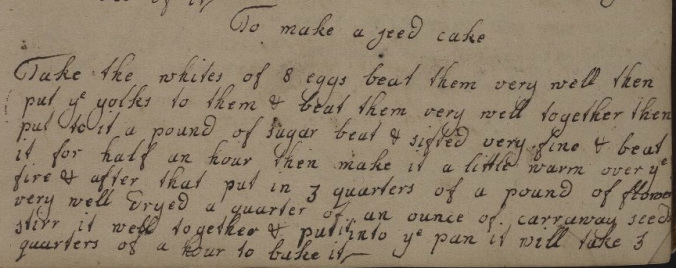 of it
To make a seed cake
Take the whites of 8 eggs beat them very well then
put ye yolks to them & beat them very well together then
put to it a pound of sugar beat & sifted very fine & beat
it for half an hour then make it a little warm over ye
fire & after that put in 3 quarters of a pound of flower
very well dryed a quarter of an ounce of carraway seeds
stirr it well together & put it into ye pan it will take 3
quarters of a hour to bake it